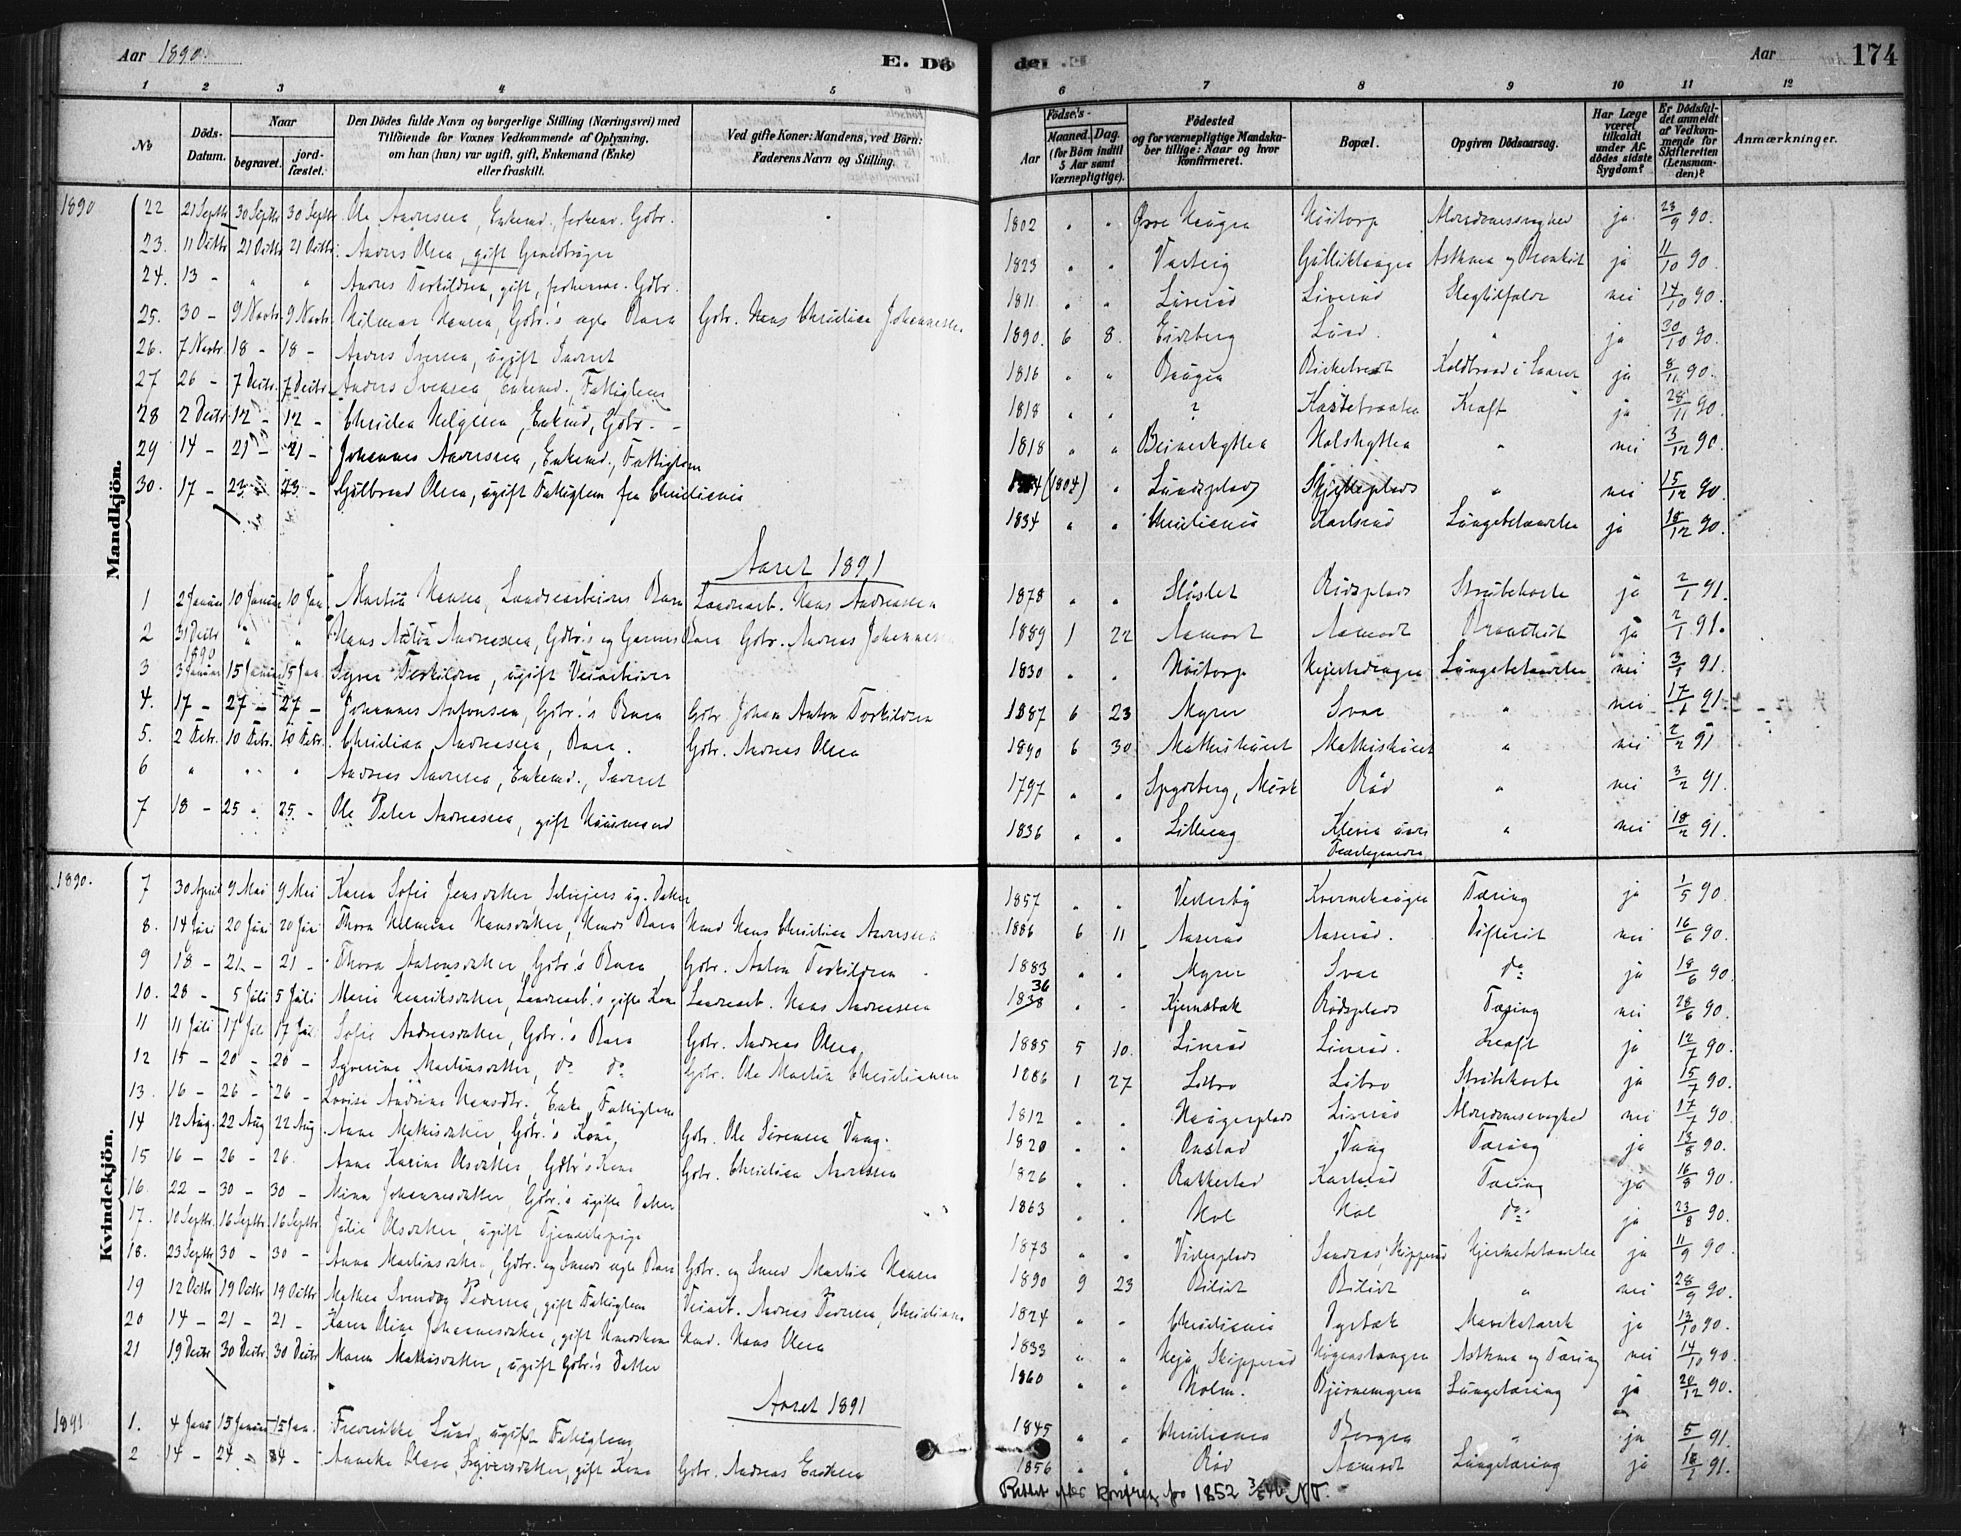 Aar 1890.
E. Dö
der. E.
Aar
174
1 2 3 4 5 6 7 8 9 10 11 12
No
Döds-Datum.
Naar
begravet.
jord-fæstet.
Den Dödes fulde Navn og borgerlige Stilling (Næringsvei) med Tilföiende for Voxnes Vedkommende af Oplysning, om han (hun) var ugift, gift, Enkemand (Enke) eller fraskilt.
Ved gifte Koner: Mandens, ved Börn: Faderens Navn og Stilling.
Födsels-
Aar
Maaned. Dag. (for Börn indtil 5 Aar samt Værnepligtige).
Födested og for værnepligtige Mandskaber tillige: Naar og hvor Konfirmeret.
Bopæl.
Opgiven Dödsaarsag.
Har Læge været tilkaldt under Afdödes sidste Sygdom?
Er Dödsfaldet anmeldt af Vedkommende for Skifteretten (Lensmanden)?
Anmærkninger.
Mandkjön.
1890 22 21 Septbr 30 Septbr 30 Septbr Ole Andersen, Enkemd., forhenv. Gdbr. 1802 Øvre Haugen Høitorp Alderdomssvaghed ja 23/9 90.
23. 11 Octbr 21 Octbr 21 Octbr. Anders Olsen, gift Gaardbruger 1823 Varteig Gulliklaugen Asthma og Bronkit ja 11/10 90.
24. 13 - " " Anders Torkildsen, gift, forhenv. Gdbr. 1811 Linerud Linerud Slagtilfælde nei 14/10 90.
25. 30 - 9 Novbr. 9 Novbr. Hilmar Hansen, Gdbr.'s ægte Barn Gdbr. Hans Christian Johannesen 1890. 6 8. Eidsberg Lund " ja 30/10 90.
26. 7 Novbr. 18 - 18 - Anders Iversen, ugift Inderst 1816 Haugen Birkebredt Koldbrand i Laaret ja 8/11 90.
27 26 - 7 Decbr. 7 Decbr. Anders Svensen, Enkemd., Fattiglem 1818 ? Kastebraaten Kræft ja 28/11 90.
28 2 Decbr 12 - 12 - Christen Helgesen, Enkemd, Gdbr. 1818 Beinerhytten Holshytten " nei 3/12 90.
29 14 - 21 - 21 - Johannes Andersen, Enkemd., Fattiglem (1804) Lundsplads " nei 15/12 90.
30. 17 - 23 - 23 - Gulbrand Olsen, ugift Fattiglem fra Christiania 1834 Christiania Karlsrud Lungebetændelse ja 18/12 90.
Aaret 1891
1 2 Januar 10 Januar 10 Jan. Martin Hansen, Landarbeiders Barn Landearb. Hans Andreasen 1878 Rødsplads Strubehoste ja 2/1 91.
2 31 Decbr 1890 " " Hans Anton Andreassen, Gdbr.'s og Garvers Barn Gdbr. Andreas Johannesen 1889 1 22 Aamodt Aamodt Bronchit ja 2/1 91.
3 3 Januar 15 Januar 15 Jan. Syver Torkildsen, ugift Veiarbeider 1830 Høitorp Lungebetændelse nei 3/1 91.
4. 17 - 27 - 27 - Johannes Antonsen, Gdbr.'s Barn Gdbr. Johan Anton Torkildsen 1887 6 23 Myrer Svae " nei 17/1 91.
5. 2 Febr. 10 Febr. 10 Febr. Christian Andreasen, Barn. Gdbr. Andreas Olsen 1890 6 30 Mathishuset Mathishuset " nei 2/2 91
6 " " " Andreas Andersen, Enkemd., Inderst 1797 Spydeberg, Mørk Rød " nei 3/2 91.
7 18 - 25 - 25 - Ole Peter Andreasen, gift Huusmand 1836 Lilleng " nei 18/2 91.
Kvindekjön.
1890. 7 30 April 9 Mai 9 Mai Karen Sofie Jensdatter Selveiers ug. Datter 1857 Vesterby Kvernehaugen Tæring ja 1/5 90.
8. 14 Juni 20 Juni 20 Juni Thora Helmine Hansdatter, Hmds Barn Hmd Hans Christian Andersen 1886 6 11 Aaserud Aaserud. Difterit nei 16/6 90.
9 18 - 21 - 21 - Thora Antonsdatter, Gdbr.'s Barn Gdbr. Anton Torkildsen 1883 Myrer Svae do ja 18/6 90.
10. 28 - 5 Juli 5 Juli Marie Henriksdatter, Landearb.'s gifte Kone Landearb. Hans Andreasen 1838 36 Kjernsbæk Rødsplads Tæring nei 28/6 90.
11 11 Juli 17 Juli 17 Jul. Sofie Andreasdatter, Gdbr.'s Barn Gdbr. Andreas Olsen 1885 5 10. Linerud Linerud. Kræft ja 12/7 90.
12 15 - 20 - 20 - Syverine Martinsdatter, do do Gdbr. Ole Martin Christiansen 1886 1 27 Libro Libro Strubehoste ja 15/7 90.
13. 16 - 26 - 26 - Lovise Andrine Hansdtr., Enke, Fattiglem 1812 Haugerplads Linerud Alderdomssvaghed nei 17/7 90.
14 12 Aug. 22 Aug 22 Aug Anne Mathisdatter, Gdbr.'s Kone, Gdbr. Ole Sørensen Vaag. 1820 Onstad Vaag Tæring ja 13/8 90.
15 16 - 26 - 26. Anne Karine Olsdatter, Gdbr's Kone Gdbr. Christian Andersen 1826 Rakkestad Karlsrud Tæring ja 16/8 90.
16. 22 - 30 - 30 - Mina Johannesdatter, Gdbr.'s ugifte Datter 1863 Hol Hol do ja 23/8 90.
17. 10 Septbr. 16 Septbr. 16 Septbr Julie Olsdatter, ugift Tjenestepige 1873 Hjernebetændelse ja 11/9 90.
18. 23 Septbr 30 - 30 - Anna Martinsdatter, Gdbr. og Smeds ægte Barn Gdbr. og Smed Martin Hansen 1890 9 23 Bilidt Bilidt " nei 28/9 90.
19 12 Octbr 19 Octbr 19 Octbr Mathea Svendsg Pedersen, gift Fattiglem Veiarb. Andreas Pedersen, Christiania 1824 Christiania Dysbæk Mavekatarrh ja 13/10 90.
20 14 - 21 - 21 - Karen Oline Johannesdatter, gift Hmdskone Hmd. Hans Olsen 1833 Skipperud Asthma og Tæring nei 14/10 90.
21 19 Decbr 30 Decbr 30 Decbr Maren Mathisdatter, ugift Gdbr's Datter 1860 Holm. Bjørnemyren Lungetæring ja 20/12 90.
Aaret 1891
1891 1. 4 Janr 15 Januar 15 Jan. Fredrikke Lund, ugift Fattiglem 1845 Christiania Borgen " ja 5/1 91.
2 14 - 24 - 24 - Anneke Olava Syversdatter, gift Kone Gdbr. Andreas 1856 Rød Aamodt Lungetæring ja 18/1 91.
Rettet efter konfreg. for 1852 NO.